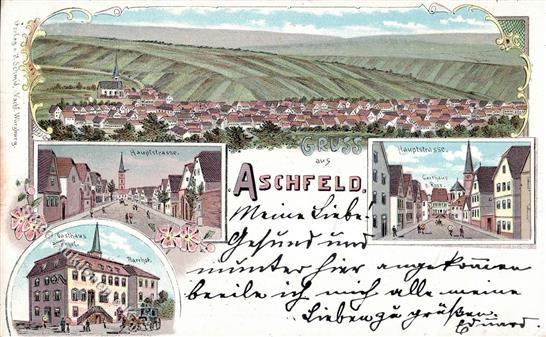 GRUSS
aus
ASCHFELD.
Hauptstrasse.
Hauptstrasse.
Gasthaus
z. Ross.
Gasthaus
z. Engel.
Marktpl.
Meine Liebe
Gesund und
munter hier angekommen
beeile ich mich alle meine
Lieben zu grüßen.
Eduard.